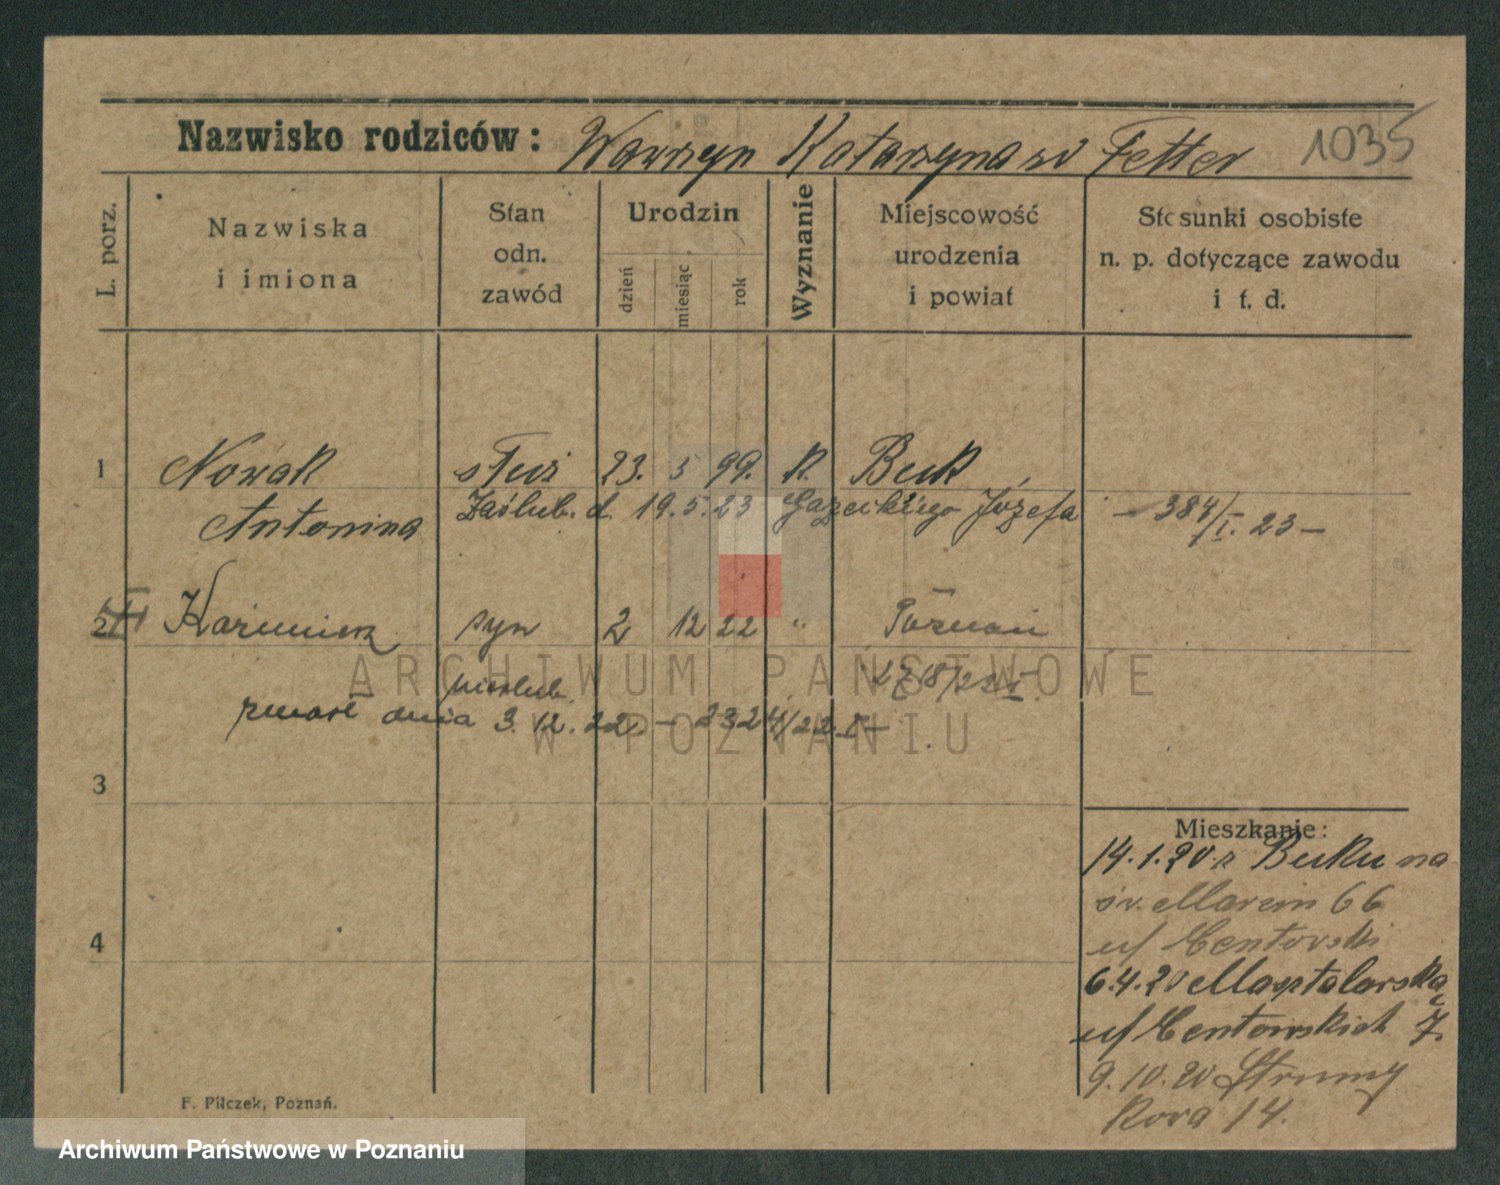 Nazwisko rodziców: Wawrzyn Katarzyna zd Fetter 1035
L. porz.
Nazwiska i imiona
Stan odn. zawód
Urodzin
dzień miesiąc rok
Wyznanie
Miejscowość urodzenia i powiat
Stosunki osobiste n. p. dotyczące zawodu i t. d.
1 Nowak służ 23. 5 99. K. Buk
Antonina Zaślub. d. 19.5.23 Józefa 384/I. 23 —
2 Kazimierz syn 2 12 22 " Poznań
nieślub. 2718/22 I
zmarł dnia 3. 12. 22 — 2324/22 I —
3
4
Mieszkanie:
14.1.20 z Buku na
św. Marcin 66
u/
6.4.20
u/ 7.
9.10.20 Strumy
kova 14.
F. Pilczek, Poznań.
ARCHIWUM PAŃSTWOWE
W POZNANIU
Archiwum Państwowe w Poznaniu